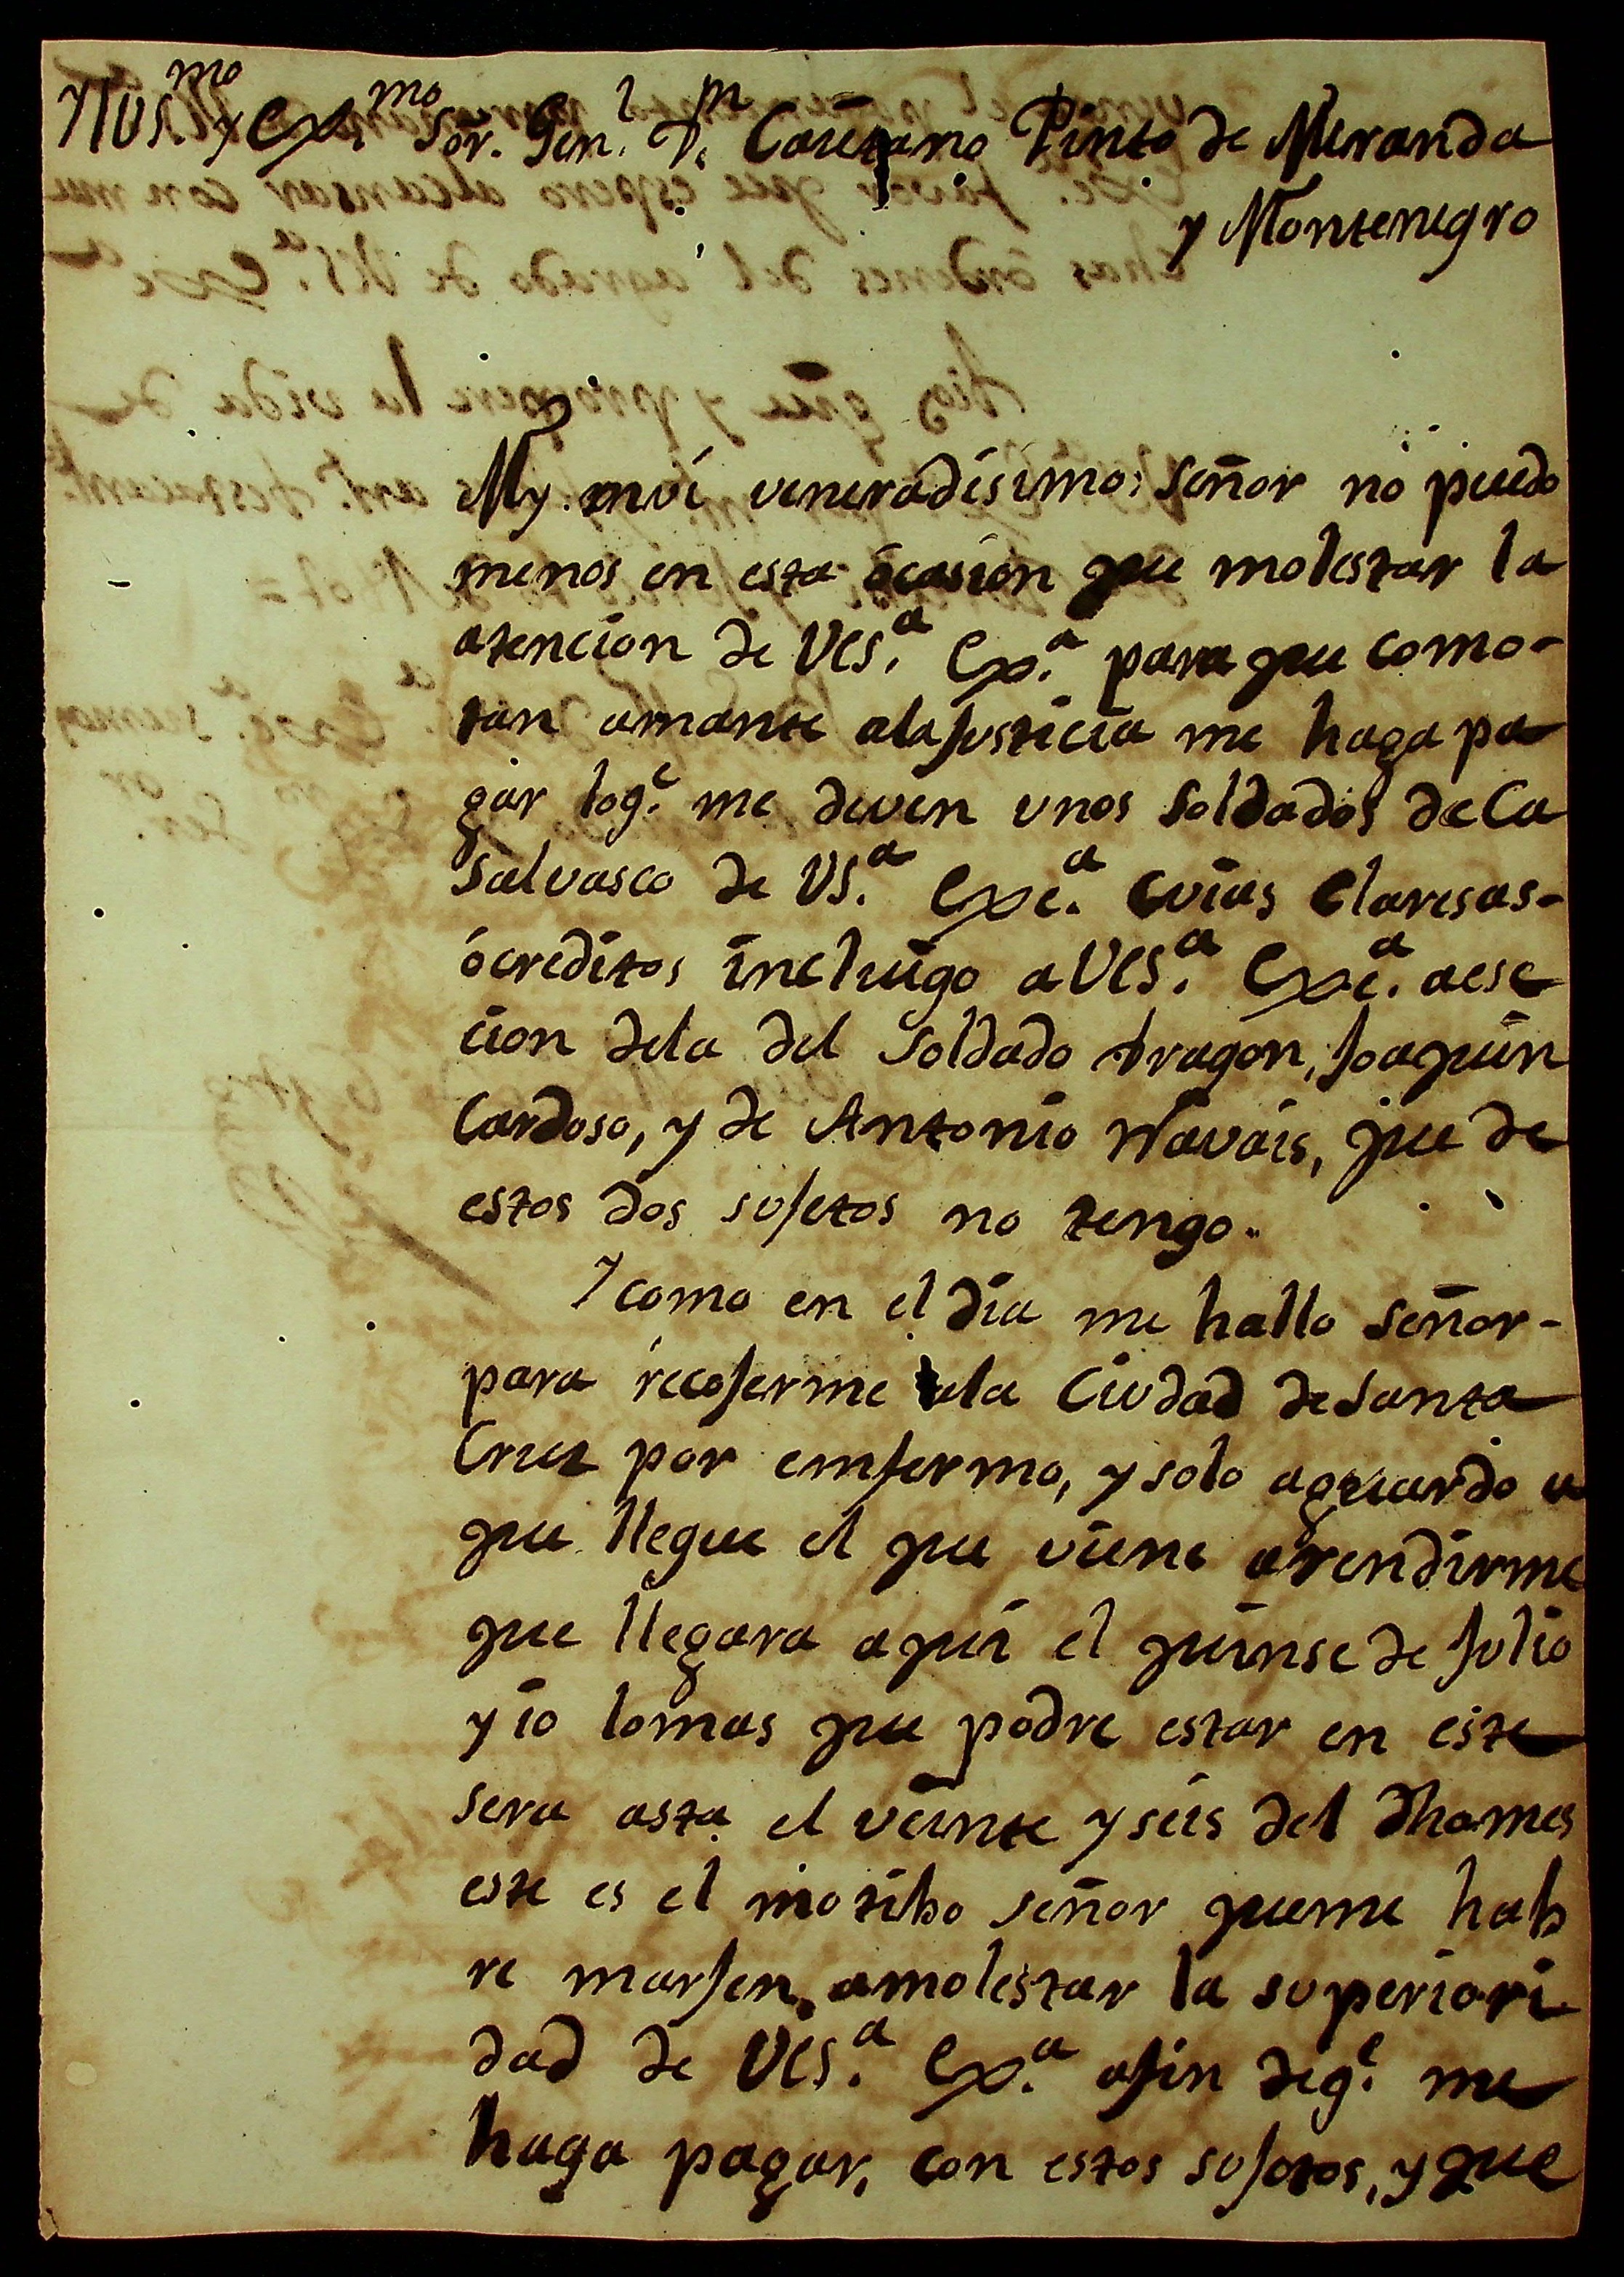 Yllus.mo y Exc.mo Sor. Gen.l D.n Caietano Pinto de Miranda
y Montenegro
My mui veneradisimo Señor no puedo
menos en esta ocasion que molestar la
atencion de VS.a Ex.a para que como-
tan amante ala Justicia me haga pa
gar loq.e me deven unos Soldados de Ca
salvasco de VS.a Exc.a cuias Claresas-
ócreditos incluigo a VS.a Exc.a aesc
cion dela del Soldado dragon, Joaquin
Cardoso, y de Antonio Navais, que de
estos dos sujetos no tengo.
Y como en el dia me hallo señor-
para recojerme ala Ciudad de Santa
Cruz por emfermo, y solo aguardo a
que llegue el que viene a rendirme
que llegara aqui el quinse de Julio
y io lomas que podre estar en este
sera asta el veinte y seis del dho mes
este es el motibo señor queme hab
re marjen, amolestar la superiori
dad de VS.a Ex.a afin deq.e me
haga pagar, con estos sujotos, y que